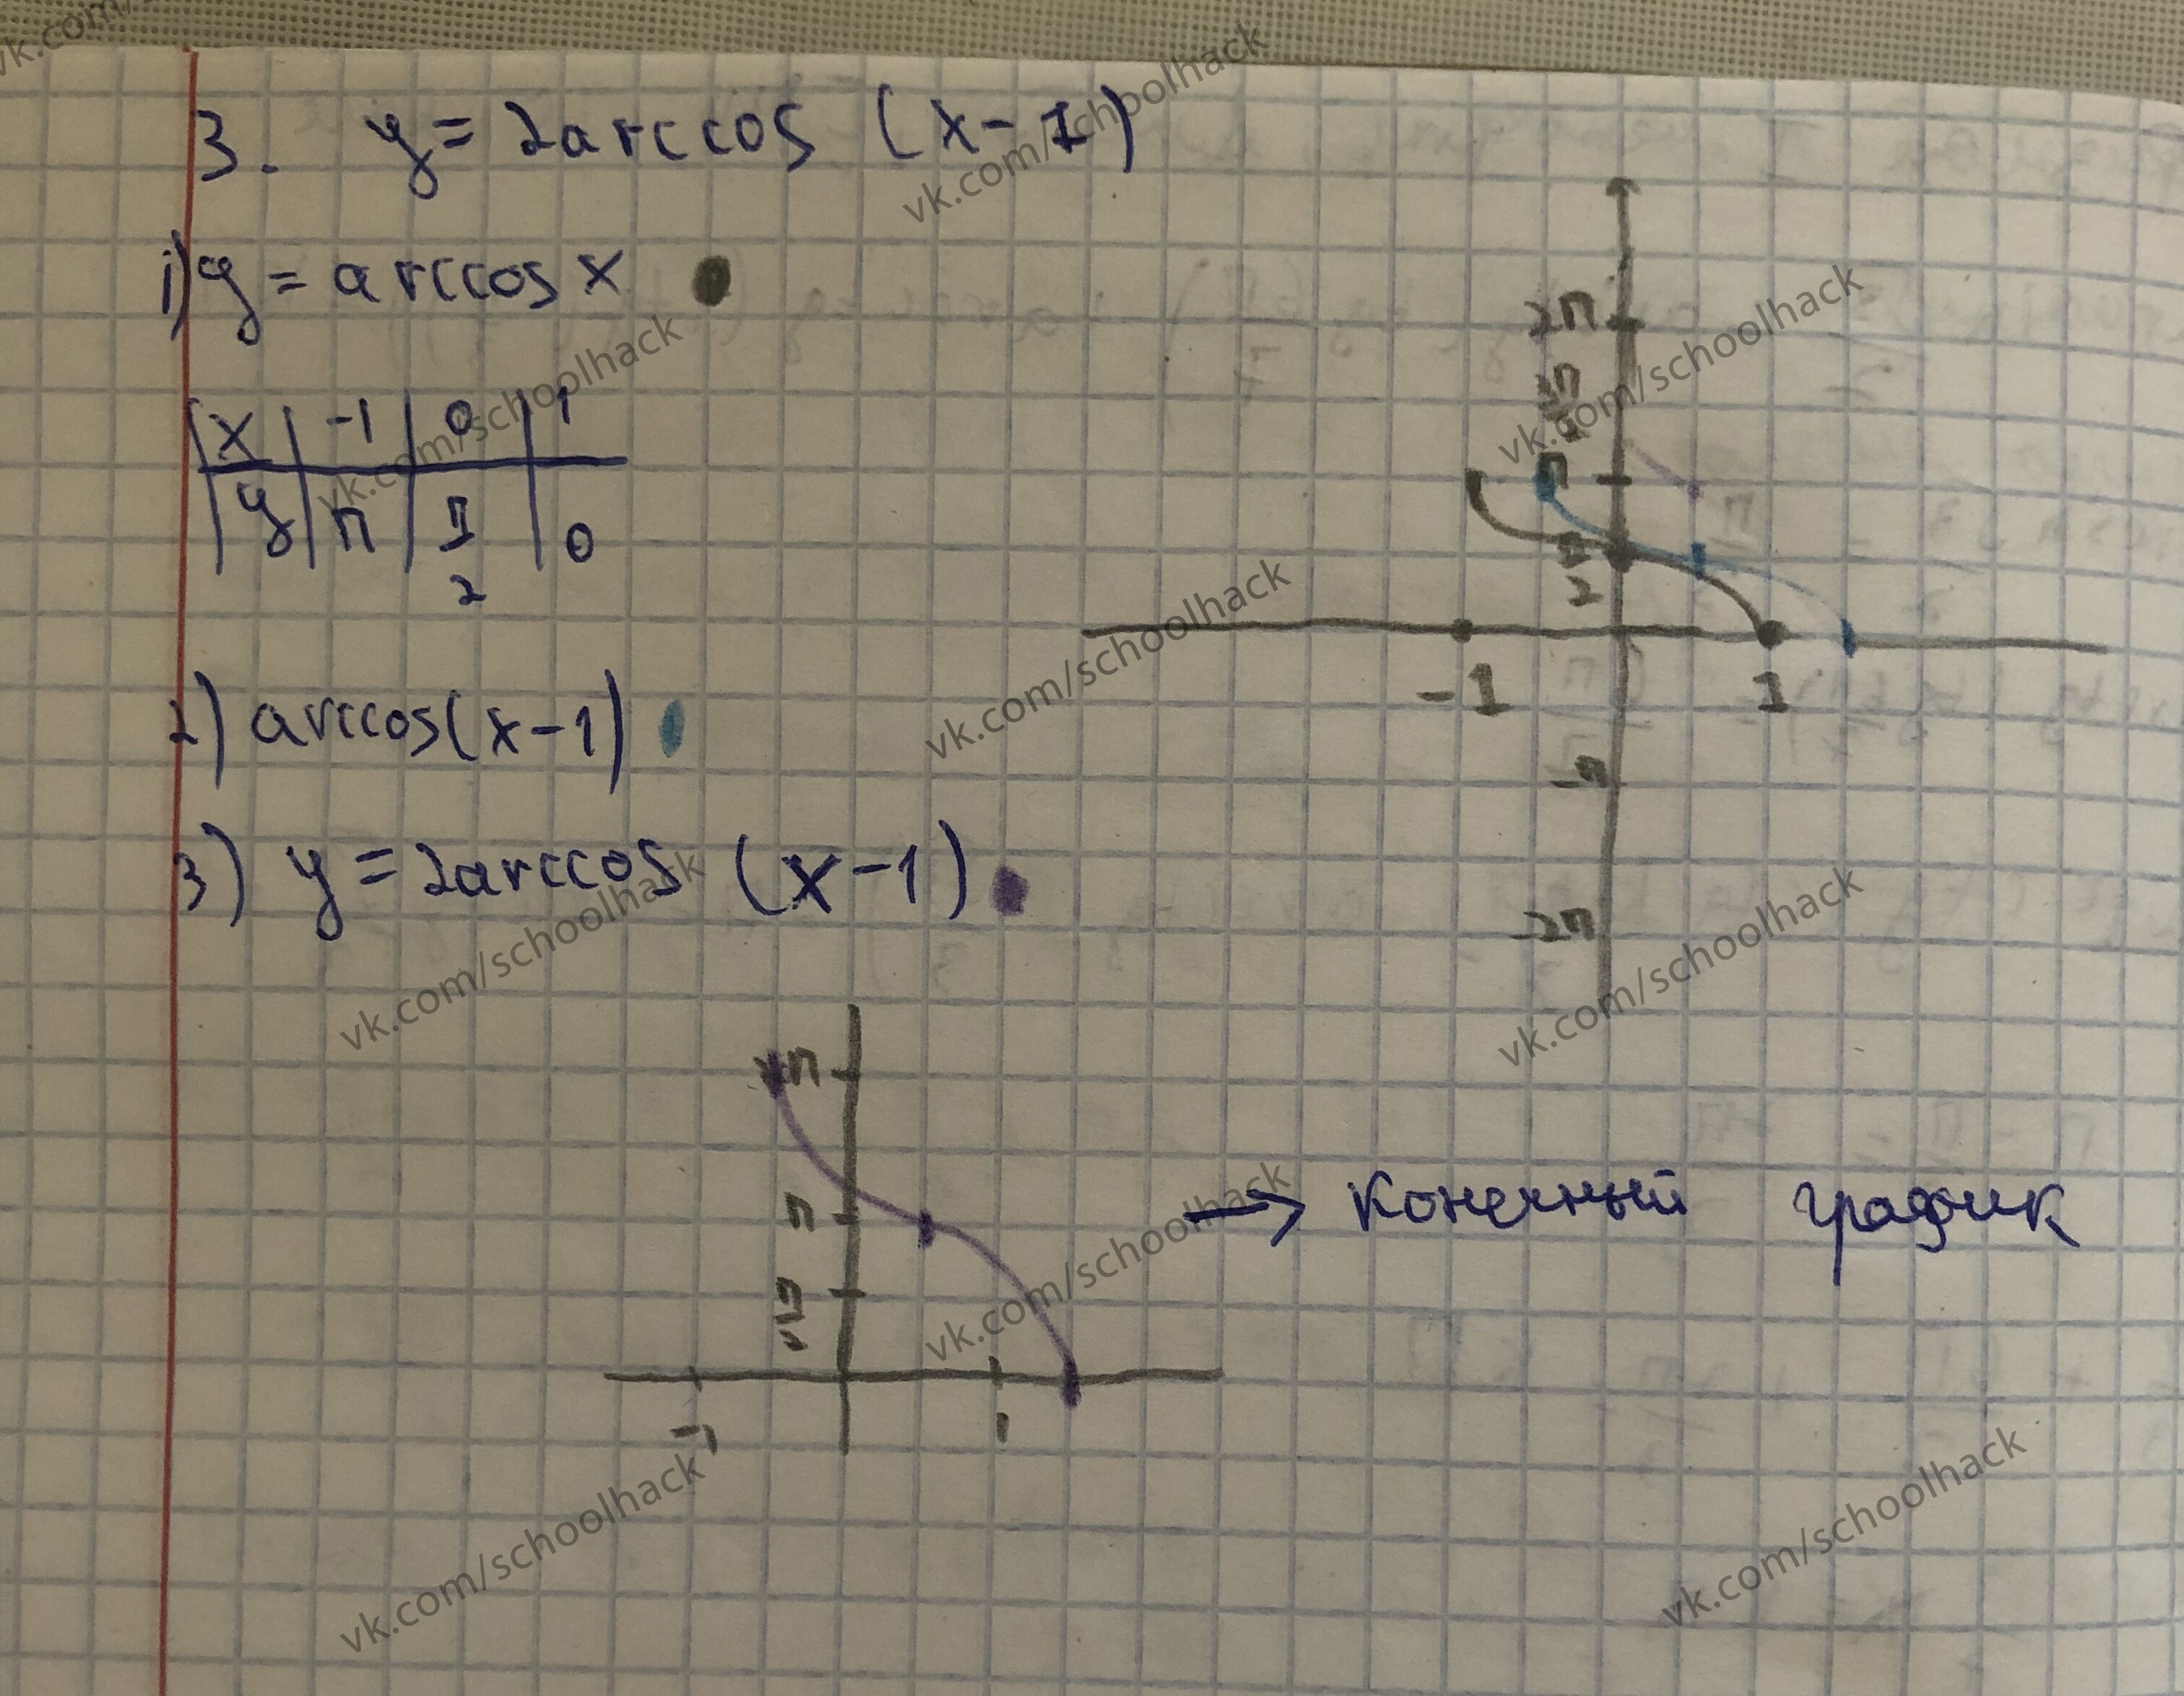 3. y = 2arccos (x-1)
1) y = arccos x
x | -1 | 0 | 1
y | π | π/2 | 0
2) arccos(x-1)
3) y = 2arccos (x-1)
2π
π
π/2
-1
1
-π
-2π
2π
π
π/2
-1
1
→ конечный график
vk.com/schoolhack
vk.com/schoolhack
vk.com/schoolhack
vk.com/schoolhack
vk.com/schoolhack
vk.com/schoolhack
vk.com/schoolhack
vk.com/schoolhack
vk.com/schoolhack
vk.com/schoolhack